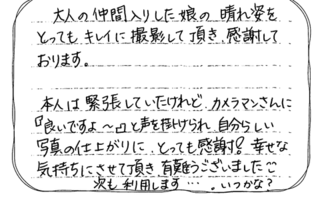 大人の仲間入りした娘の晴れ姿を
とってもキレイに撮影して頂き、感謝して
おります。
本人は緊張していたけれど、カメラマンさんに
『良いですよ～』と声を掛けられ、自分らしい
写真の仕上がりに、とっても感謝!幸せな
気持ちにさせて頂き、有難うございました
次も利用します…。いつかな?